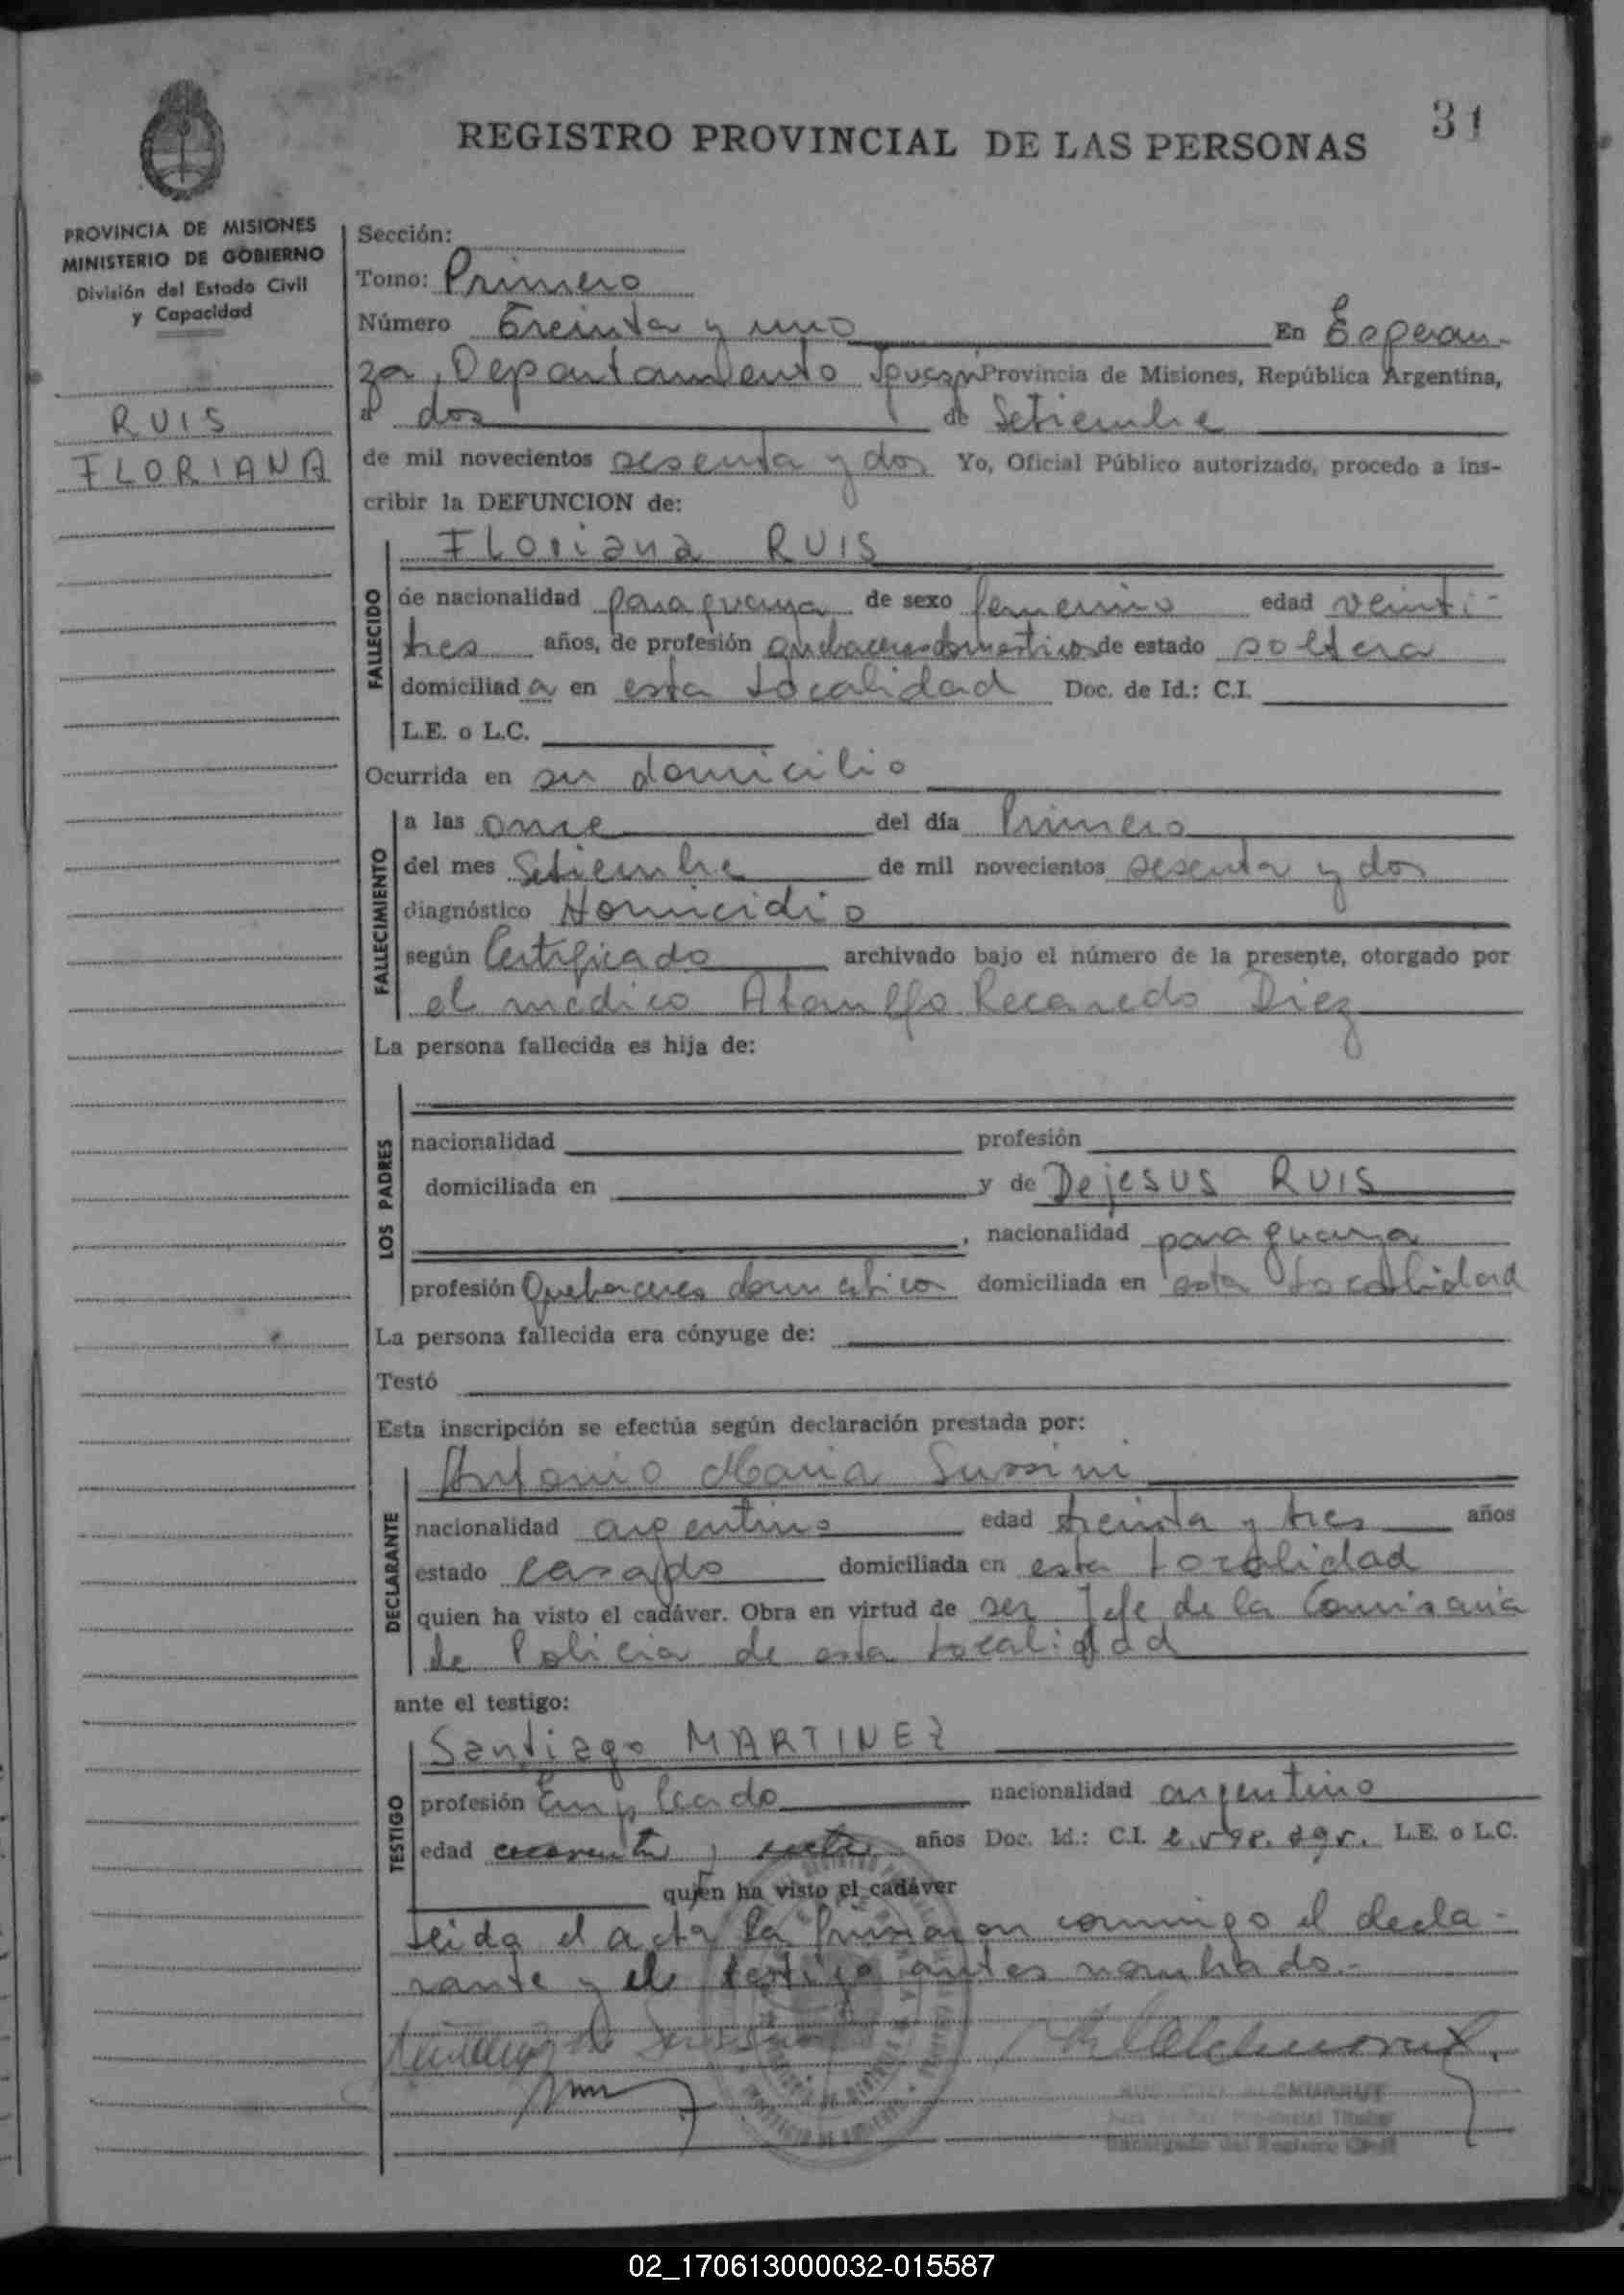 31
REGISTRO PROVINCIAL DE LAS PERSONAS
PROVINCIA DE MISIONES
MINISTERIO DE GOBIERNO
División del Estado Civil
y Capacidad
RUIS
FLORIANA
Sección:
Tomo: Primero
Número Treinta y uno En Esperan-
za, Departamento Iguazú Provincia de Misiones, República Argentina,
a dos de Setiembre
de mil novecientos sesenta y dos Yo, Oficial Público autorizado, procedo a ins-
cribir la DEFUNCION de:
Floriana RUIS
FALLECIDO
de nacionalidad paraguaya de sexo femenino edad veinti-
tres años, de profesión quehaceres domesticos de estado soltera
domiciliad a en esta Localidad Doc. de Id.: C.I.
L.E. o L.C.
Ocurrida en su domicilio
FALLECIMIENTO
a las once del día Primero
del mes Setiembre de mil novecientos sesenta y dos
diagnóstico Homicidio
según Certificado archivado bajo el número de la presente, otorgado por
el medico Ataulfo Recaredo Diez
La persona fallecida es hija de:
LOS PADRES
nacionalidad profesión
domiciliada en y de Dejesus RUIS
, nacionalidad paraguaya
profesión Quehaceres domesticos domiciliada en esta Localidad
La persona fallecida era cónyuge de:
Testó
Esta inscripción se efectúa según declaración prestada por:
Antonio Maria Sussini
DECLARANTE
nacionalidad argentino edad treinta y tres años
estado casado domiciliada en esta Localidad
quien ha visto el cadáver. Obra en virtud de ser Jefe de la Comisaria
de Policia de esta Localidad
ante el testigo:
Santiago MARTINEZ
TESTIGO
profesión Empleado nacionalidad argentino
edad cuarenta y siete años Doc. Id.: C.I. L.E. o L.C.
quien ha visto el cadáver
Leida el acta la firmaron conmigo el decla-
rante y el testigo antes nombrado.-
Encargado del Registro Civil
02_170613000032-015587